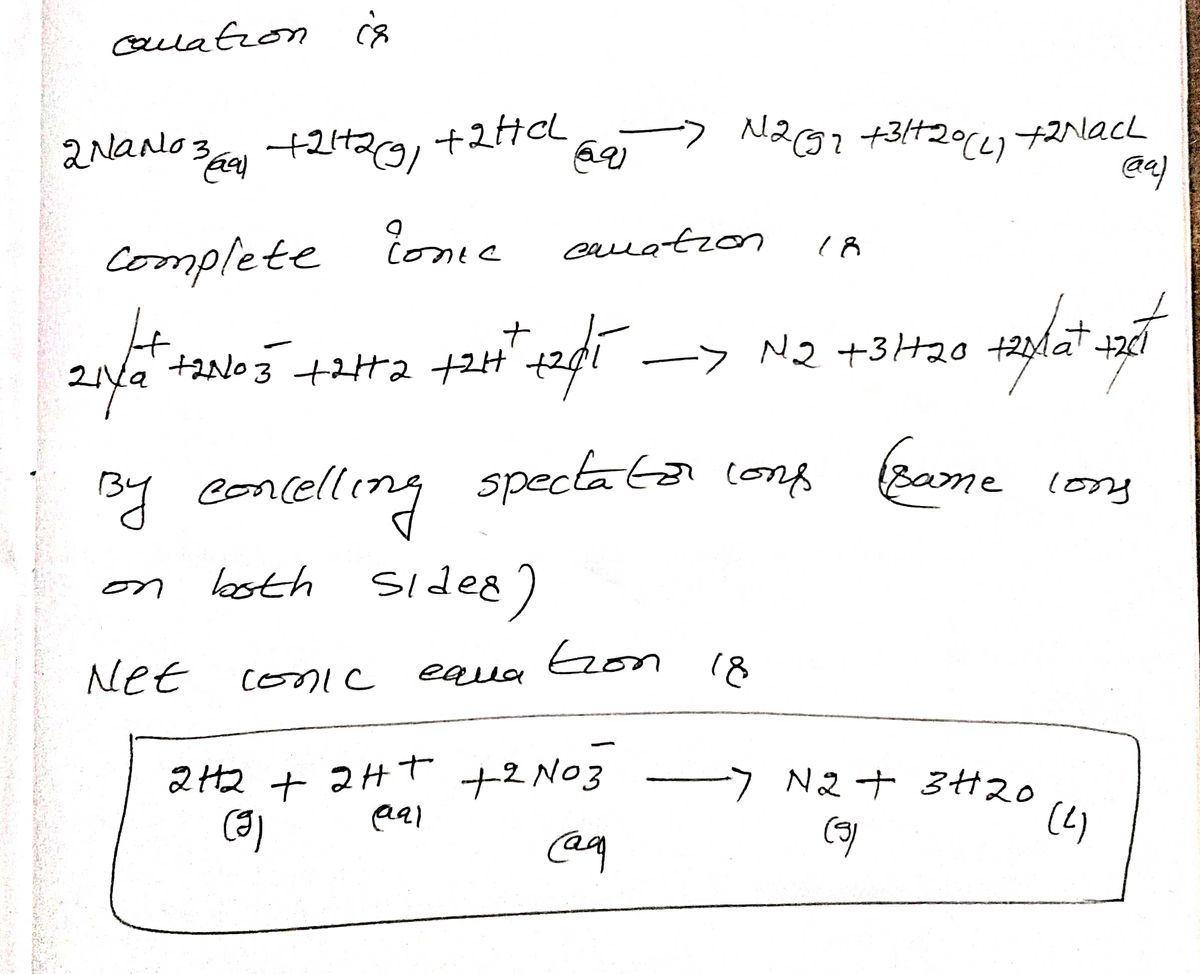 equation is
2NaNO3(aq) +2H2(g) +2HCl(aq) → N2(g) +3H2O(L) +2NaCl(aq)
complete ionic equation is
2Na+ +2NO3- +2H2 +2H+ +2Cl- → N2 +3H2O +2Na+ +2Cl-
By concelling spectator ions (same ions
on both sides)
Net ionic equation is
2H2(g) + 2H+(aq) +2NO3-(aq → N2(g) + 3H2O(L)